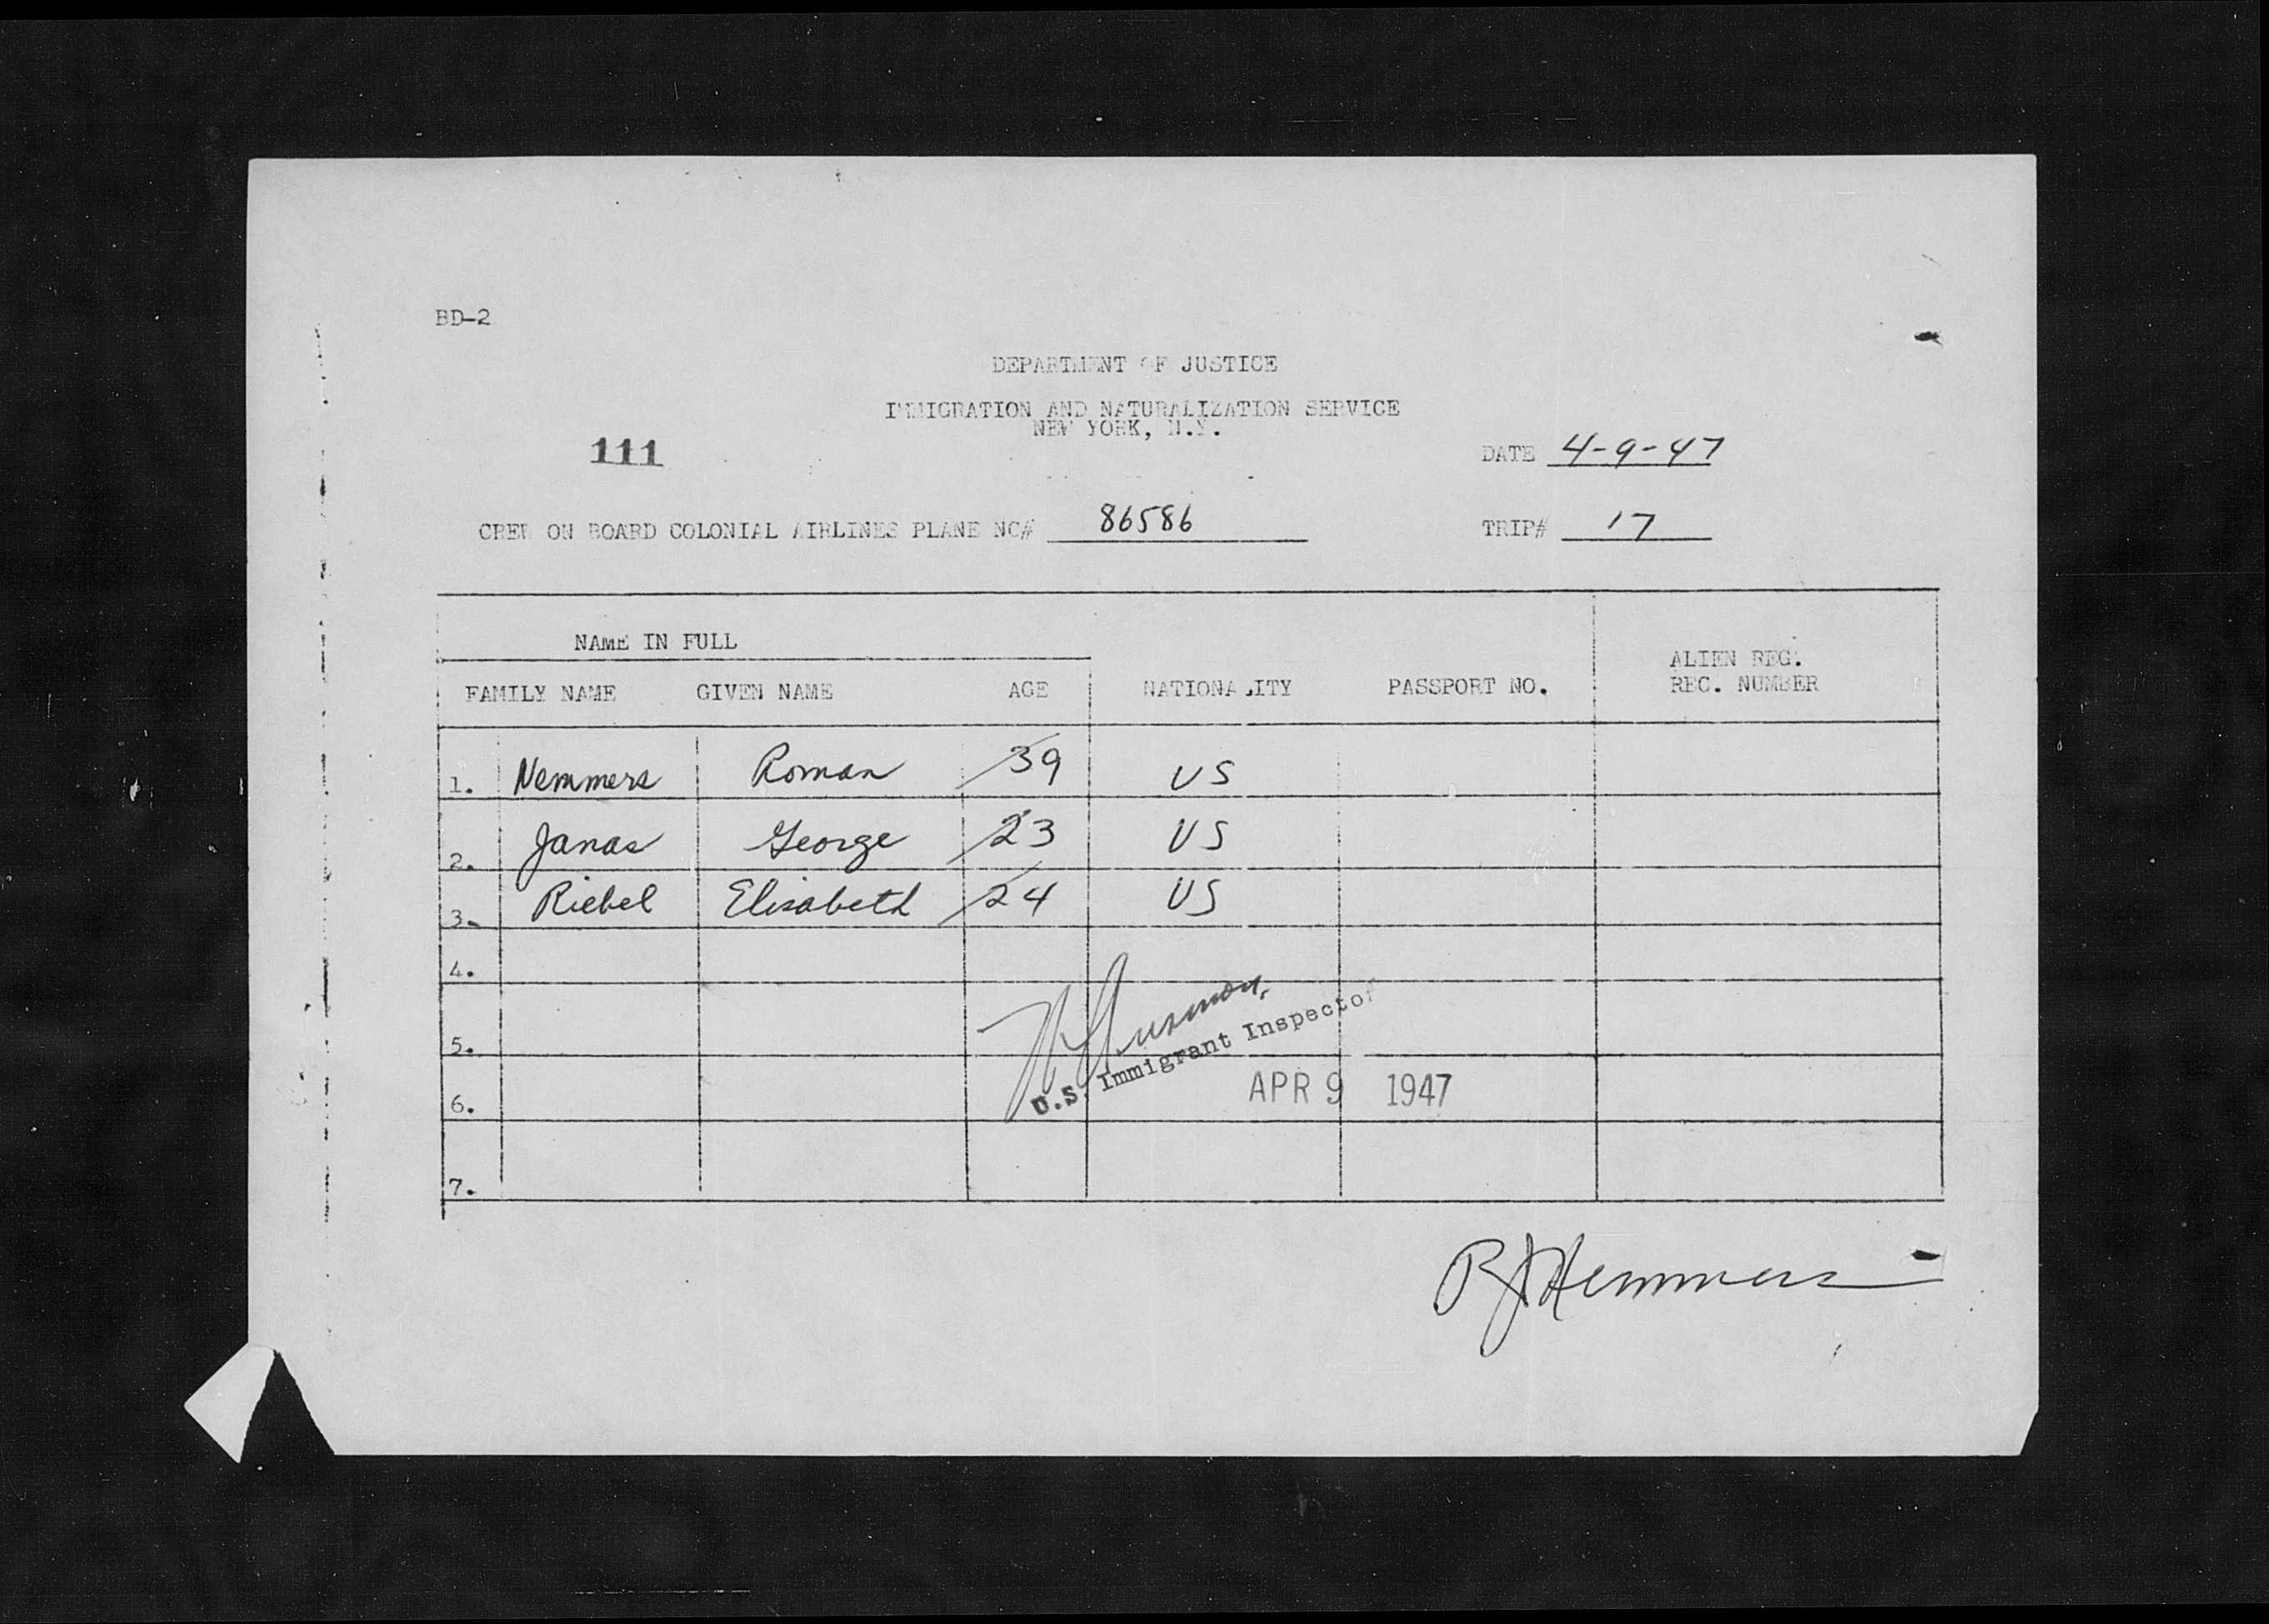 BD-2
DEPARTMENT OF JUSTICE
IMMIGRATION AND NATURALIZATION SERVICE
NEW YORK, N.Y.
111
DATE 4-9-47
CREW ON BOARD COLONIAL AIRLINES PLANE NC# 86586 TRIP# 17
NAME IN FULL
FAMILY NAME GIVEN NAME AGE NATIONALITY PASSPORT NO. ALIEN REG. REC. NUMBER
1. Nemmers Roman 39 US
2. Janas George 23 US
3. Riebel Elisabeth 24 US
4.
5.
U.S. Immigrant Inspector
6.
APR 9 1947
7.
RJ Nemmers